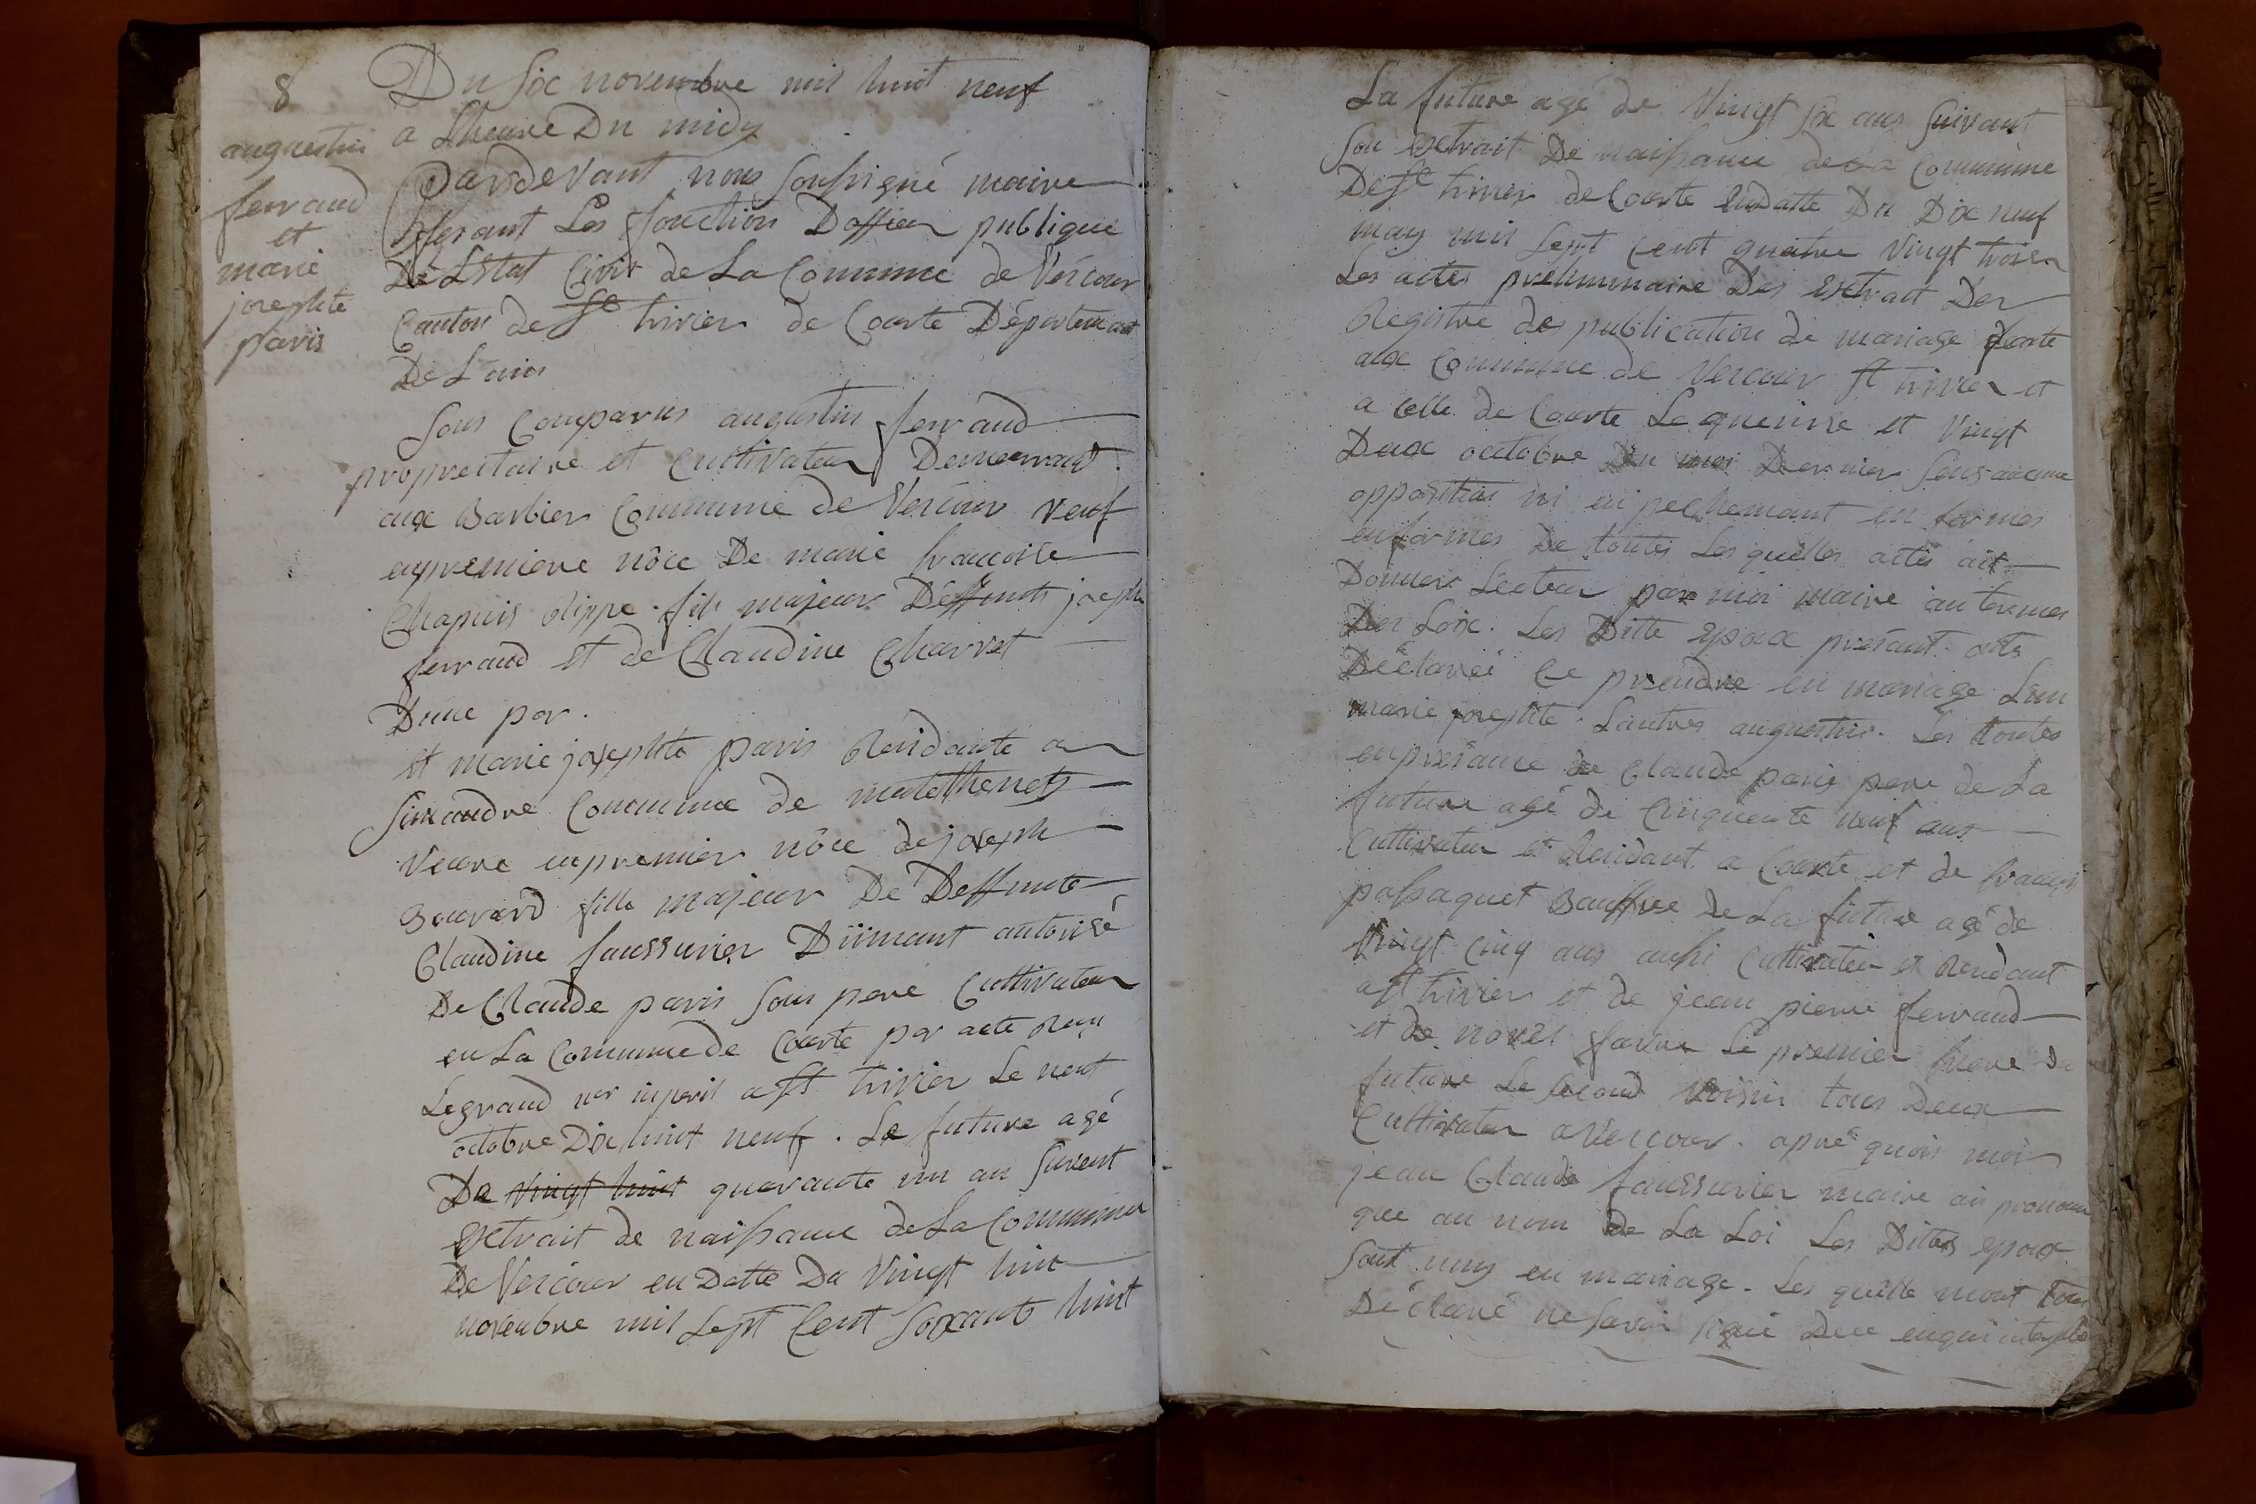 8
augustin
ferraud
et
marie
josephte
paris
Du Six novembre mil huit neuf
a Lheure Du midy
Pardevant nous Sousigné maire
fesant Les fonction Doffier publique
De LEtat Civir de La Commune de Vescour
Canton de St trivier de Courte Département
De L'ains
Sons Comparus augustin ferraud
proprietaire et Cultivateur Demeurant
aux Barbier Commune de Vescour veuf
enpremiere nôce De marie francoise
Chapuis Olippe fils majeur Deffunts joseph
ferraud et de Claudine Charvet
Dune par.
et marie josephte paris Résidante a
Simandre Commune de
Veuve enpremier nôce de joseph
Bouvard fille majeur De Deffunte
Claudine faussurier Düment autorisé
De Claude paris Sons pere Cultivateur
en La Commune de Courte par acte Reçu
Legrand nre inperil a St trivier Le neuf
octobre Dix huit neuf. Le future agé
De vingt huit quarante un an Suivent
Extrait de naissance de La Commune
De Vescour en Datte Du Vingt huit
novembre mil Sept Cent Soixante huit
La future agé de Vingt Six ans Suivant
Son Extrait De naissance de La Commune
De St trivier de Courte En Datte Du Dix neuf
may mil Sept Cent quatre Vingt trois
Les actes preliminaire Des Extrait Des
Registre de publication de mariage faite
aux Commune de Vescour St trivier et
a celle de Courte Le queinse et Vingt
Deux octobre Du moi Dernier Sous aucune
opposition ni enpechemant en formes
enformes De toutes Les quelles actes ait
Donner Lecteur par moi maire au termes
Des Loix. Les Ditte Epoux présant onts
Déclaréé Ce prendre en mariage L'un
marie josephte L'autres augustin. Les toutes
enpresance de Claude paris pere de La
future agé de Cinquente neuf ans
Cultivateur et Résidant a Courte et de françois
passaquet Bauffree de La future agé de
Vingt Cinq ans aussi Cultivateur et Résidant
a St trivier et de jean pierre ferraud
et de noxel favre Le premier frere du
future Le Second Voisin tous Deux
Cultivateur a Vescour. après quois moi
jean Claude faussurier maire ais prononcé
que au nom de La Loi Les Dites epoux
Sont unis en mariage. Les quelle mont tous
Déclaré ne Savoir signé Dece enquis interpelé